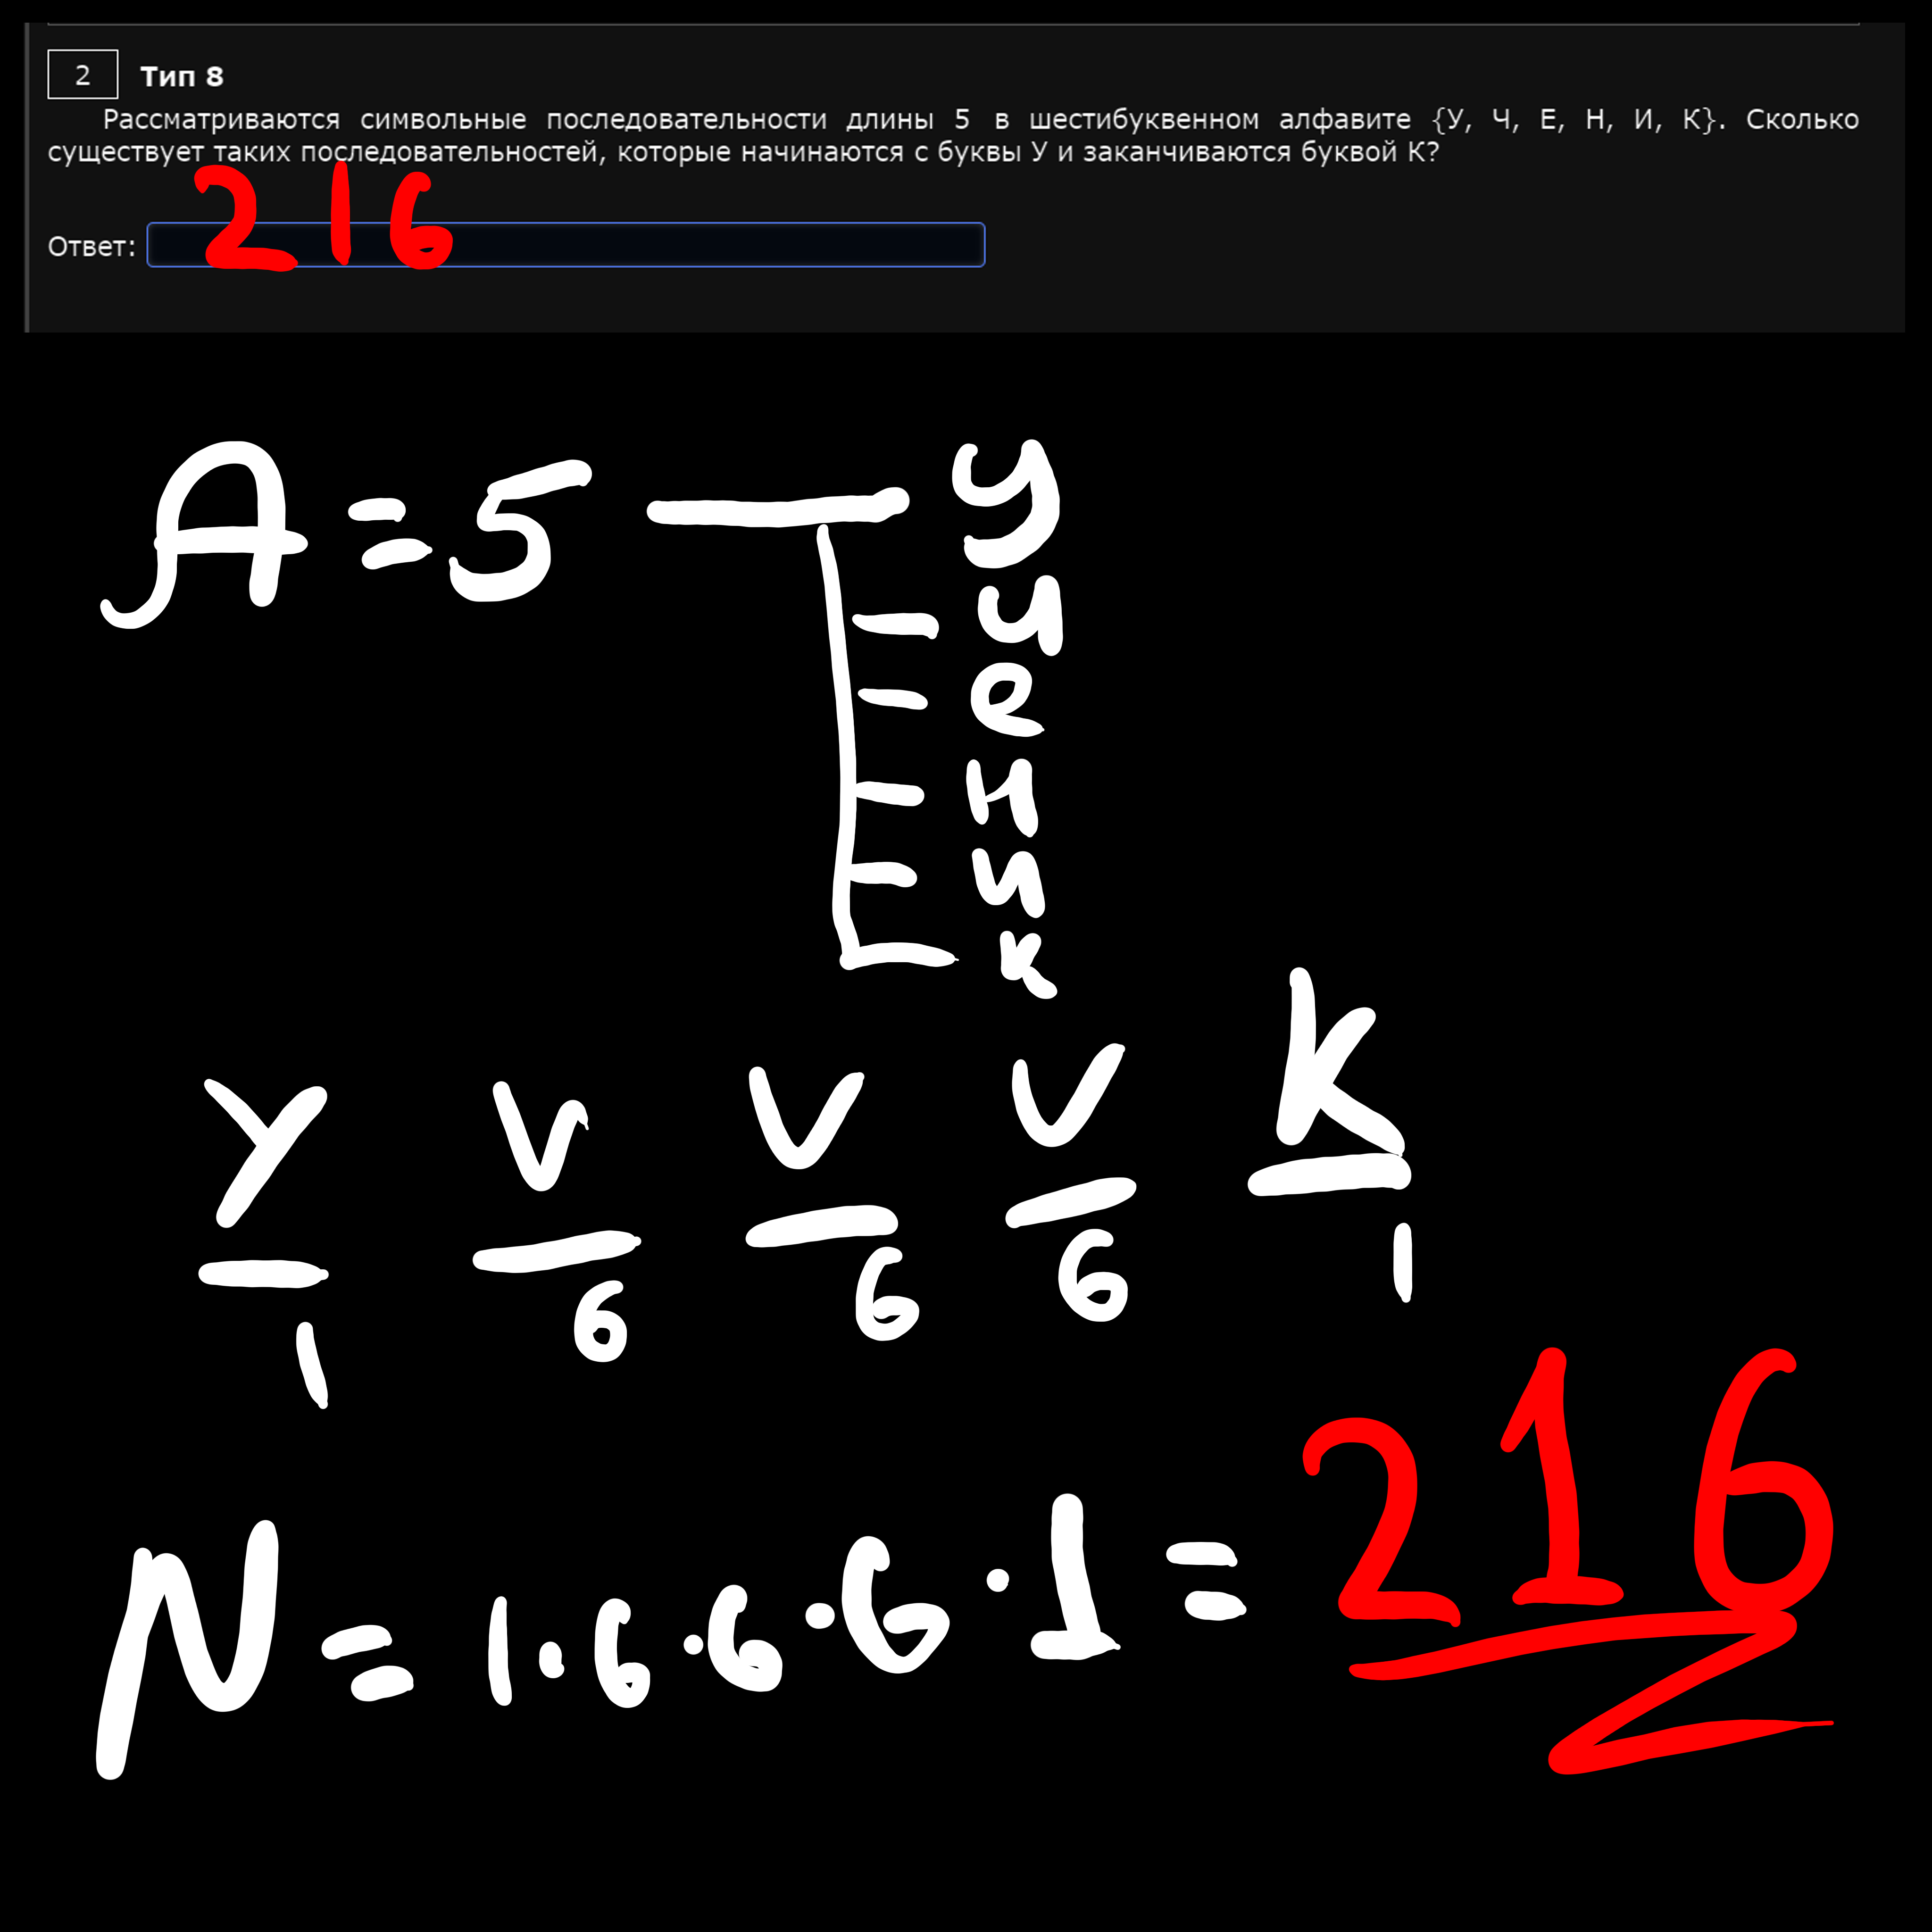 2 Тип 8
Рассматриваются символьные последовательности длины 5 в шестибуквенном алфавите {У, Ч, Е, Н, И, К}. Сколько
существует таких последовательностей, которые начинаются с буквы У и заканчиваются буквой К?
216
Ответ:
A = 5 — У
ч
е
н
и
к
У V V V К
1 6 6 6 1
N = 1 · 6 · 6 · 6 · 1 = 216